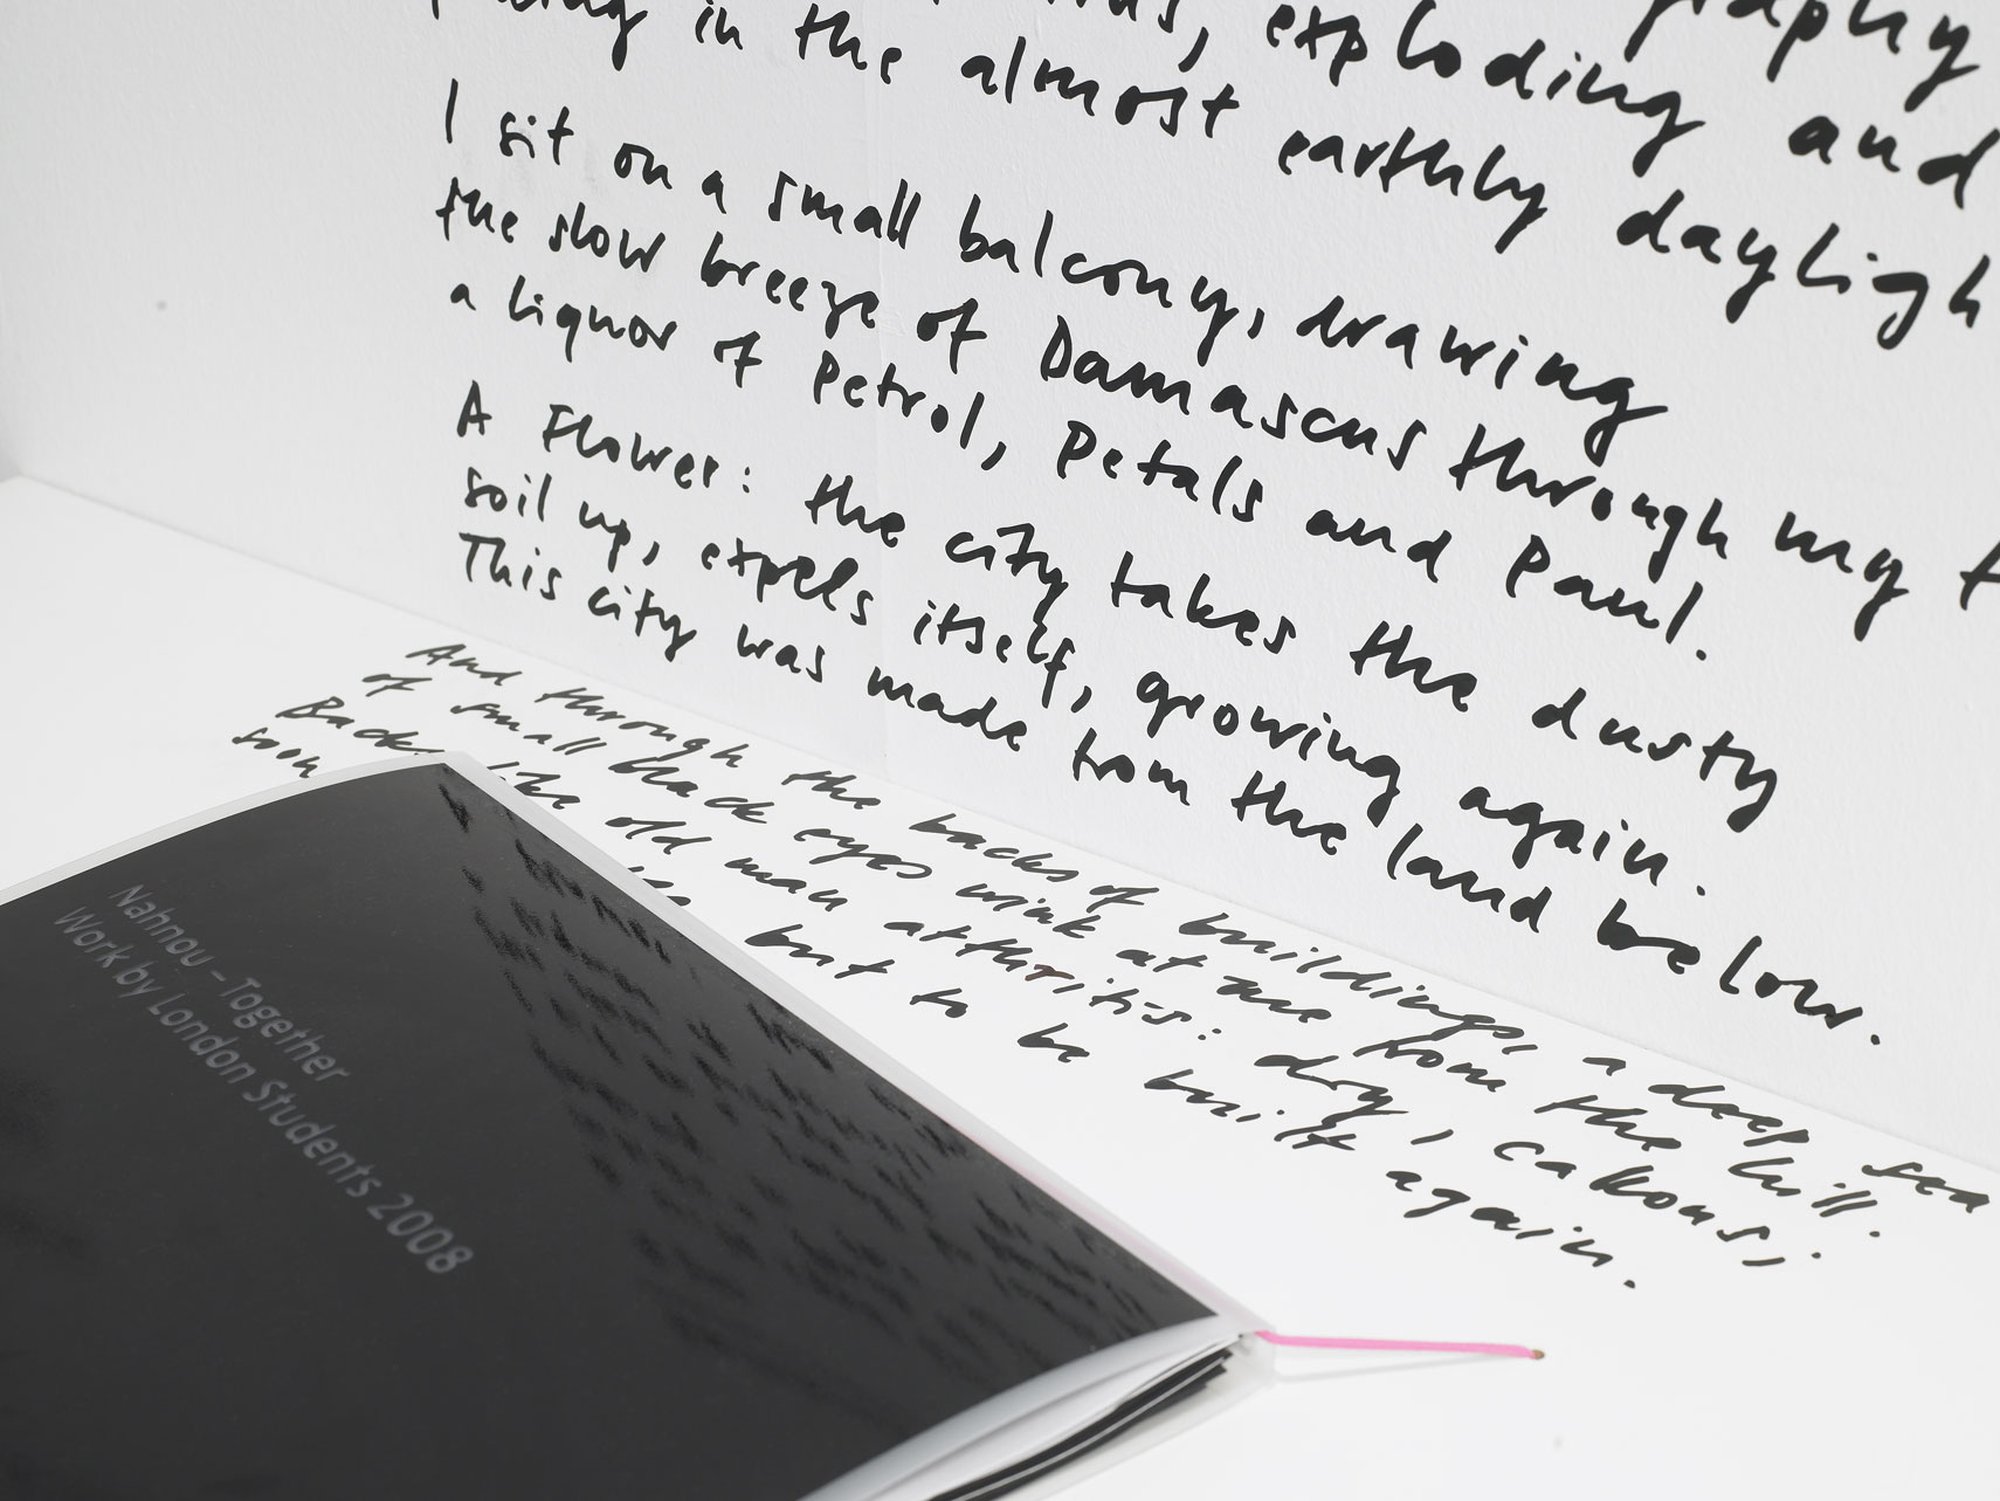 exploding and
in the almost earthly
I sit on a small balcony, drawing
the slow breeze of Damascus through my
a liquor of Petrol, Petals and Paul.
A Flower: the city takes the dusty
soil up, expels itself, growing again.
This city was made from the land below.
And through the backs of buildings, a deep sea
of small black eyes wink at me from the hill.
Backs like old man arthritis: dry, callous;
soon but to be built again.
Nahnou – Together
Work by London Students 2008